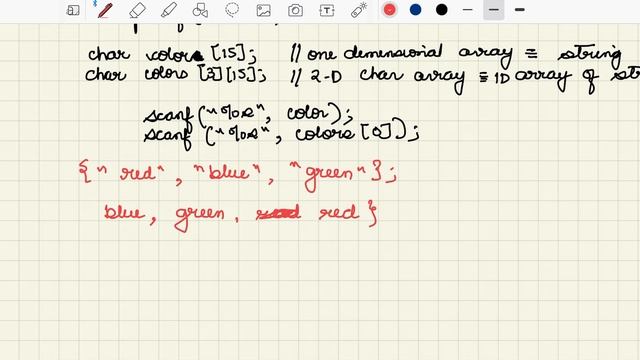 char color [15]; // one dimensional array ≡ string
char colors [3][15]; // 2-D char array ≡ 1D array of st
scanf ("%s", color);
scanf ("%s", colors [0]);
{" red", "blue", "green"};
blue, green, red }